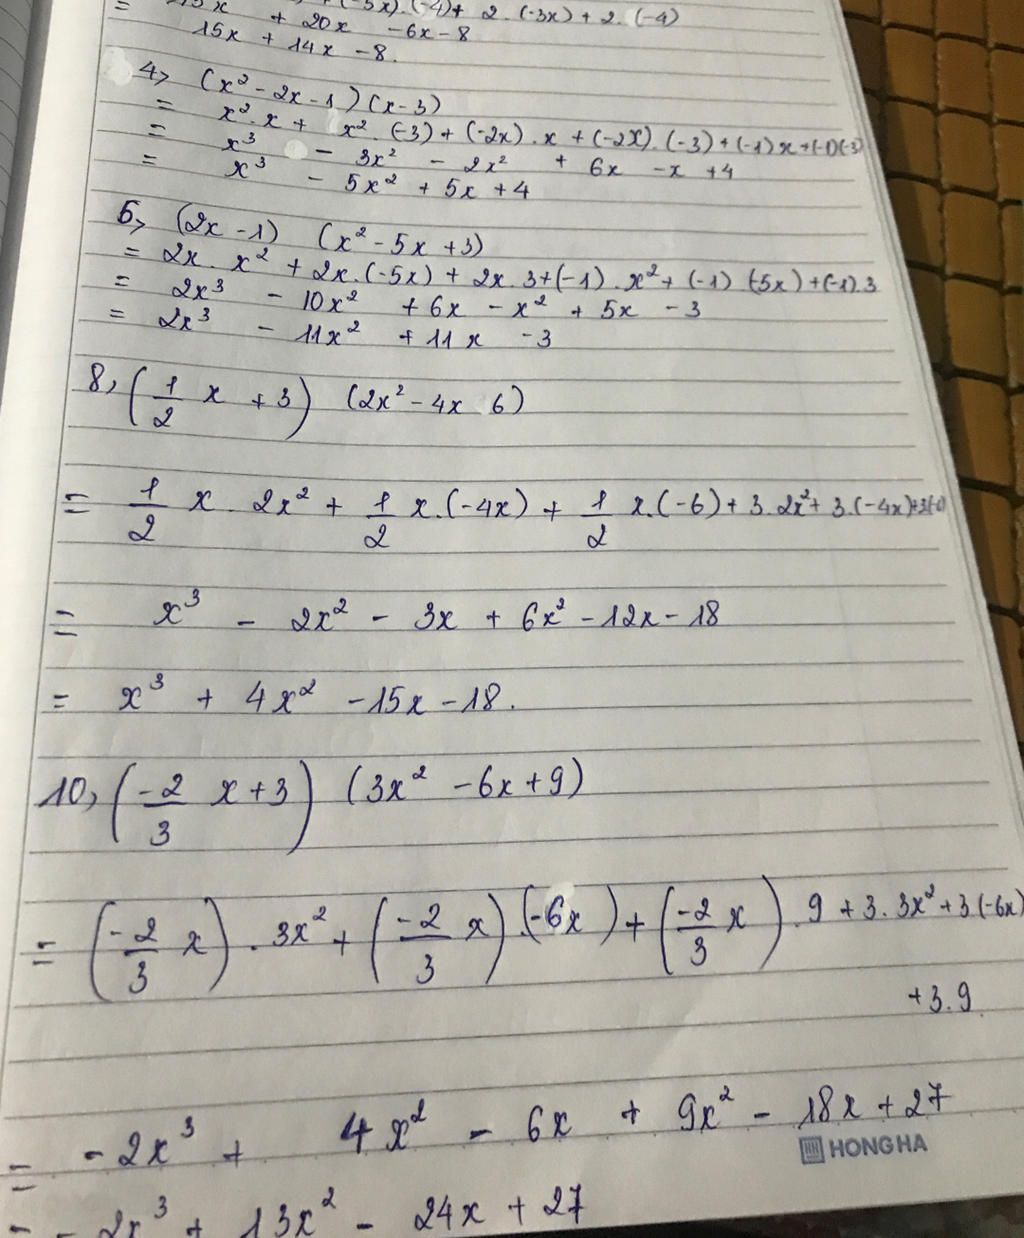 = 15x + (-3x).(-4)+ 2.(-3x)+2.(-4)
+ 20x -6x-8
15x + 14x -8.
4, (x²-2x-1)(x-3)
= x².x + x².(-3)+(-2x).x+(-2x).(-3)+(-1)x+(-1)(-3)
= x³ - 3x² - 2x² + 6x -x +4
= x³ - 5x² + 5x +4
5, (2x-1) (x²-5x+3)
= 2x.x²+2x.(-5x)+2x.3+(-1).x²+(-1)(-5x)+(-1).3
= 2x³ - 10x² +6x -x² + 5x -3
= 2x³ - 11x² +11x -3
8, (1/2 x +3) (2x²-4x 6)
= 1/2 x.2x²+1/2 x.(-4x)+1/2 x.(-6)+3.2x²+3.(-4x)+3(-6)
= x³ - 2x² - 3x + 6x² -12x-18
= x³ + 4x² -15x-18.
10, (-2/3 x+3) (3x²-6x+9)
= (-2/3 x).3x²+(-2/3 x).(-6x)+(-2/3 x).9+3.3x²+3(-6x)
+3.9
= -2x³ + 4x² - 6x + 9x² - 18x+27
HONG HA
= -2x³ + 13x² - 24x + 27